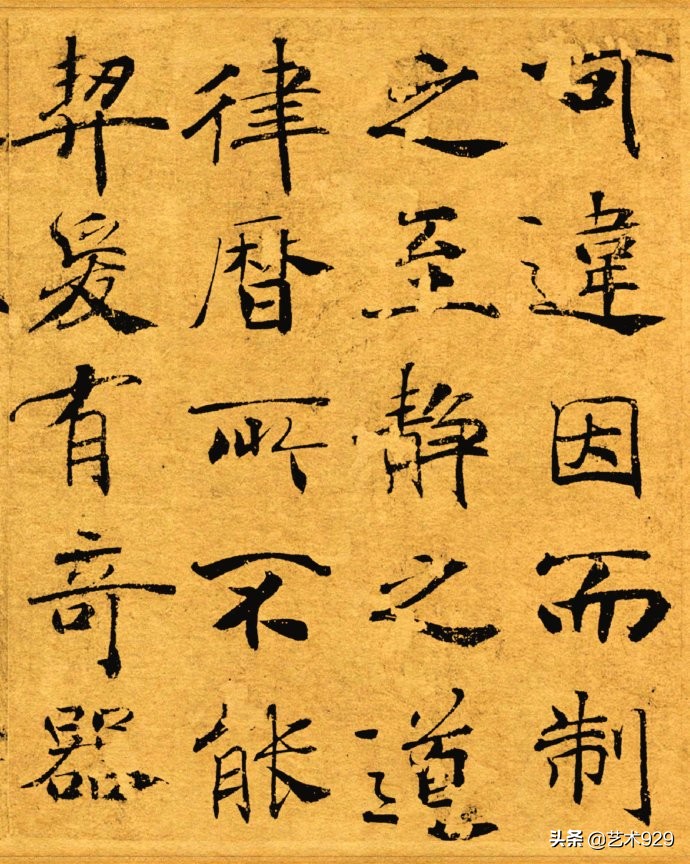 可違因而制
之至静之道
律曆所不能
契爰有奇器
头条 @艺术929